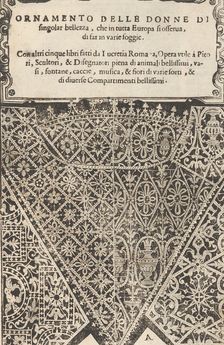 ORNAMENTO DELLE DONNE DI
singolar bellezza, che in tutta Europa si osserva,
di far in varie foggie.
Con altri cinque libri fatti da Lucretia Romana, Opera utile a Pitto
ri, Scultori, & Disegnatori piena di animali bellissimi, va-
si, fontane, caccie, musica, & fiori di varie sorti, &
di diverse Compartimenti bellissimi.
A